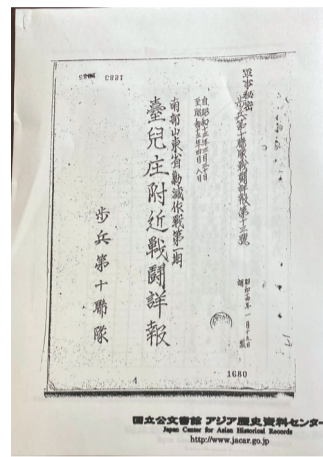 軍事秘密
歩兵第十聯隊戦闘詳報第十三號
南部山東省勦滅作戦第一期
臺兒庄附近戦闘詳報
歩兵第十聯隊
4
1680
国立公文書館 アジア歴史資料センター
Japan Center for Asian Historical Records
http://www.jacar.go.jp